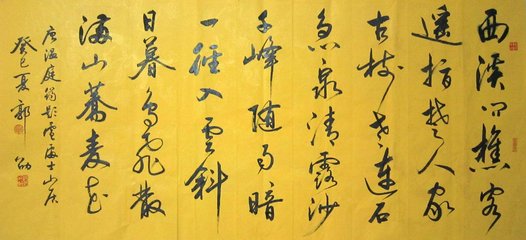 西溪问樵客
遥指楚人家
古树老连石
急泉清露沙
千峰随雨暗
一径入雲斜
日暮鸟飛散
满山蕎麦花
唐温庭筠题盧處士山居
癸巳夏郭